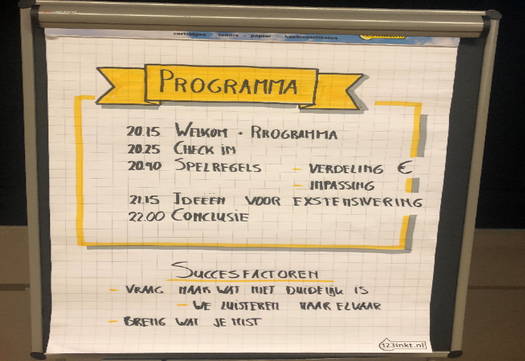 cartridges • toners • papier • kantoorartikelen
PROGRAMMA
20.15 WELKOM • PROGRAMMA
20.25 CHECK IN
20.40 SPELREGELS - VERDELING €
- INPASSING
21.15 IDEEËN VOOR EXSTENSIVERING
22.00 CONCLUSIE
SUCCESFACTOREN
- VRAAG NAAR WAT NIET DUIDELIJK IS
- WE LUISTEREN NAAR ELKAAR
- BRENG WAT JE MIST
123inkt.nl